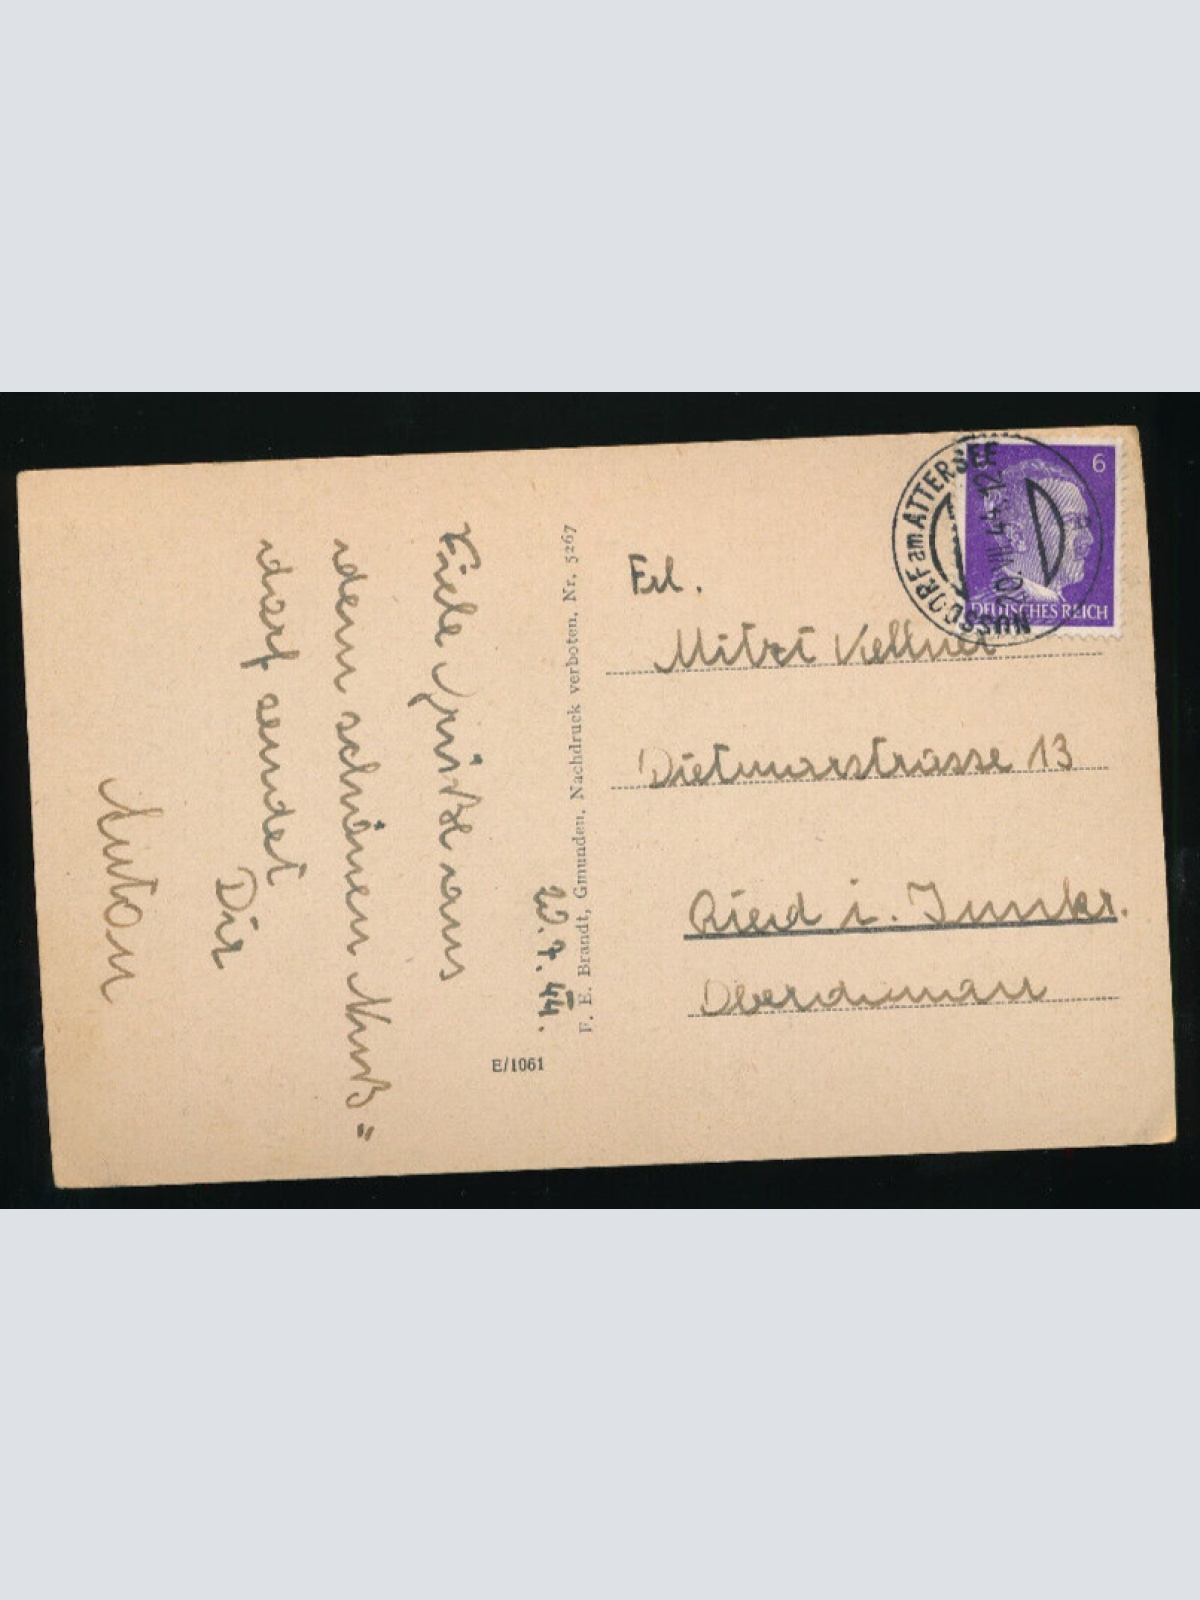 20. 7. 44.
Viele Grüße aus
dem schönen Nuß"
dorf sendet
Dir
Anton
F. E. Brandt, Gmunden, Nachdruck verboten, Nr. 5267
E/1061
6
DEUTSCHES REICH
NUSSDORF am ATTERSEE
Frl.
Mitzi Kellner
Dietmarstrasse 13
Ried i. Innkr.
Oberdonau